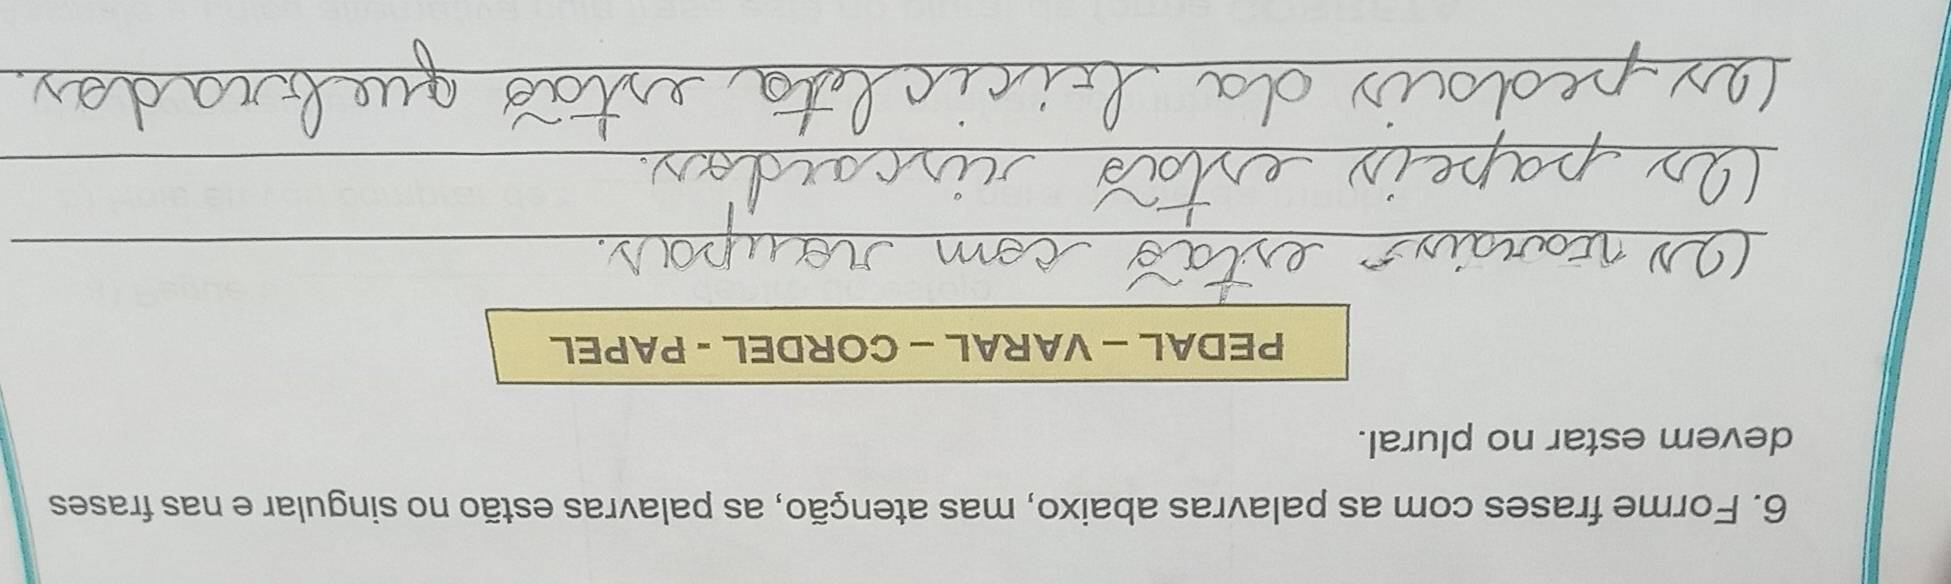 6. Forme frases com as palavras abaixo, mas atenção, as palavras estão no singular e nas frases
devem estar no plural.
PEDAL – VARAL – CORDEL - PAPEL
Os varais estão com roupas.
Os papeis estão riscardos.
Os pedais da bicicleta estão quebrados.